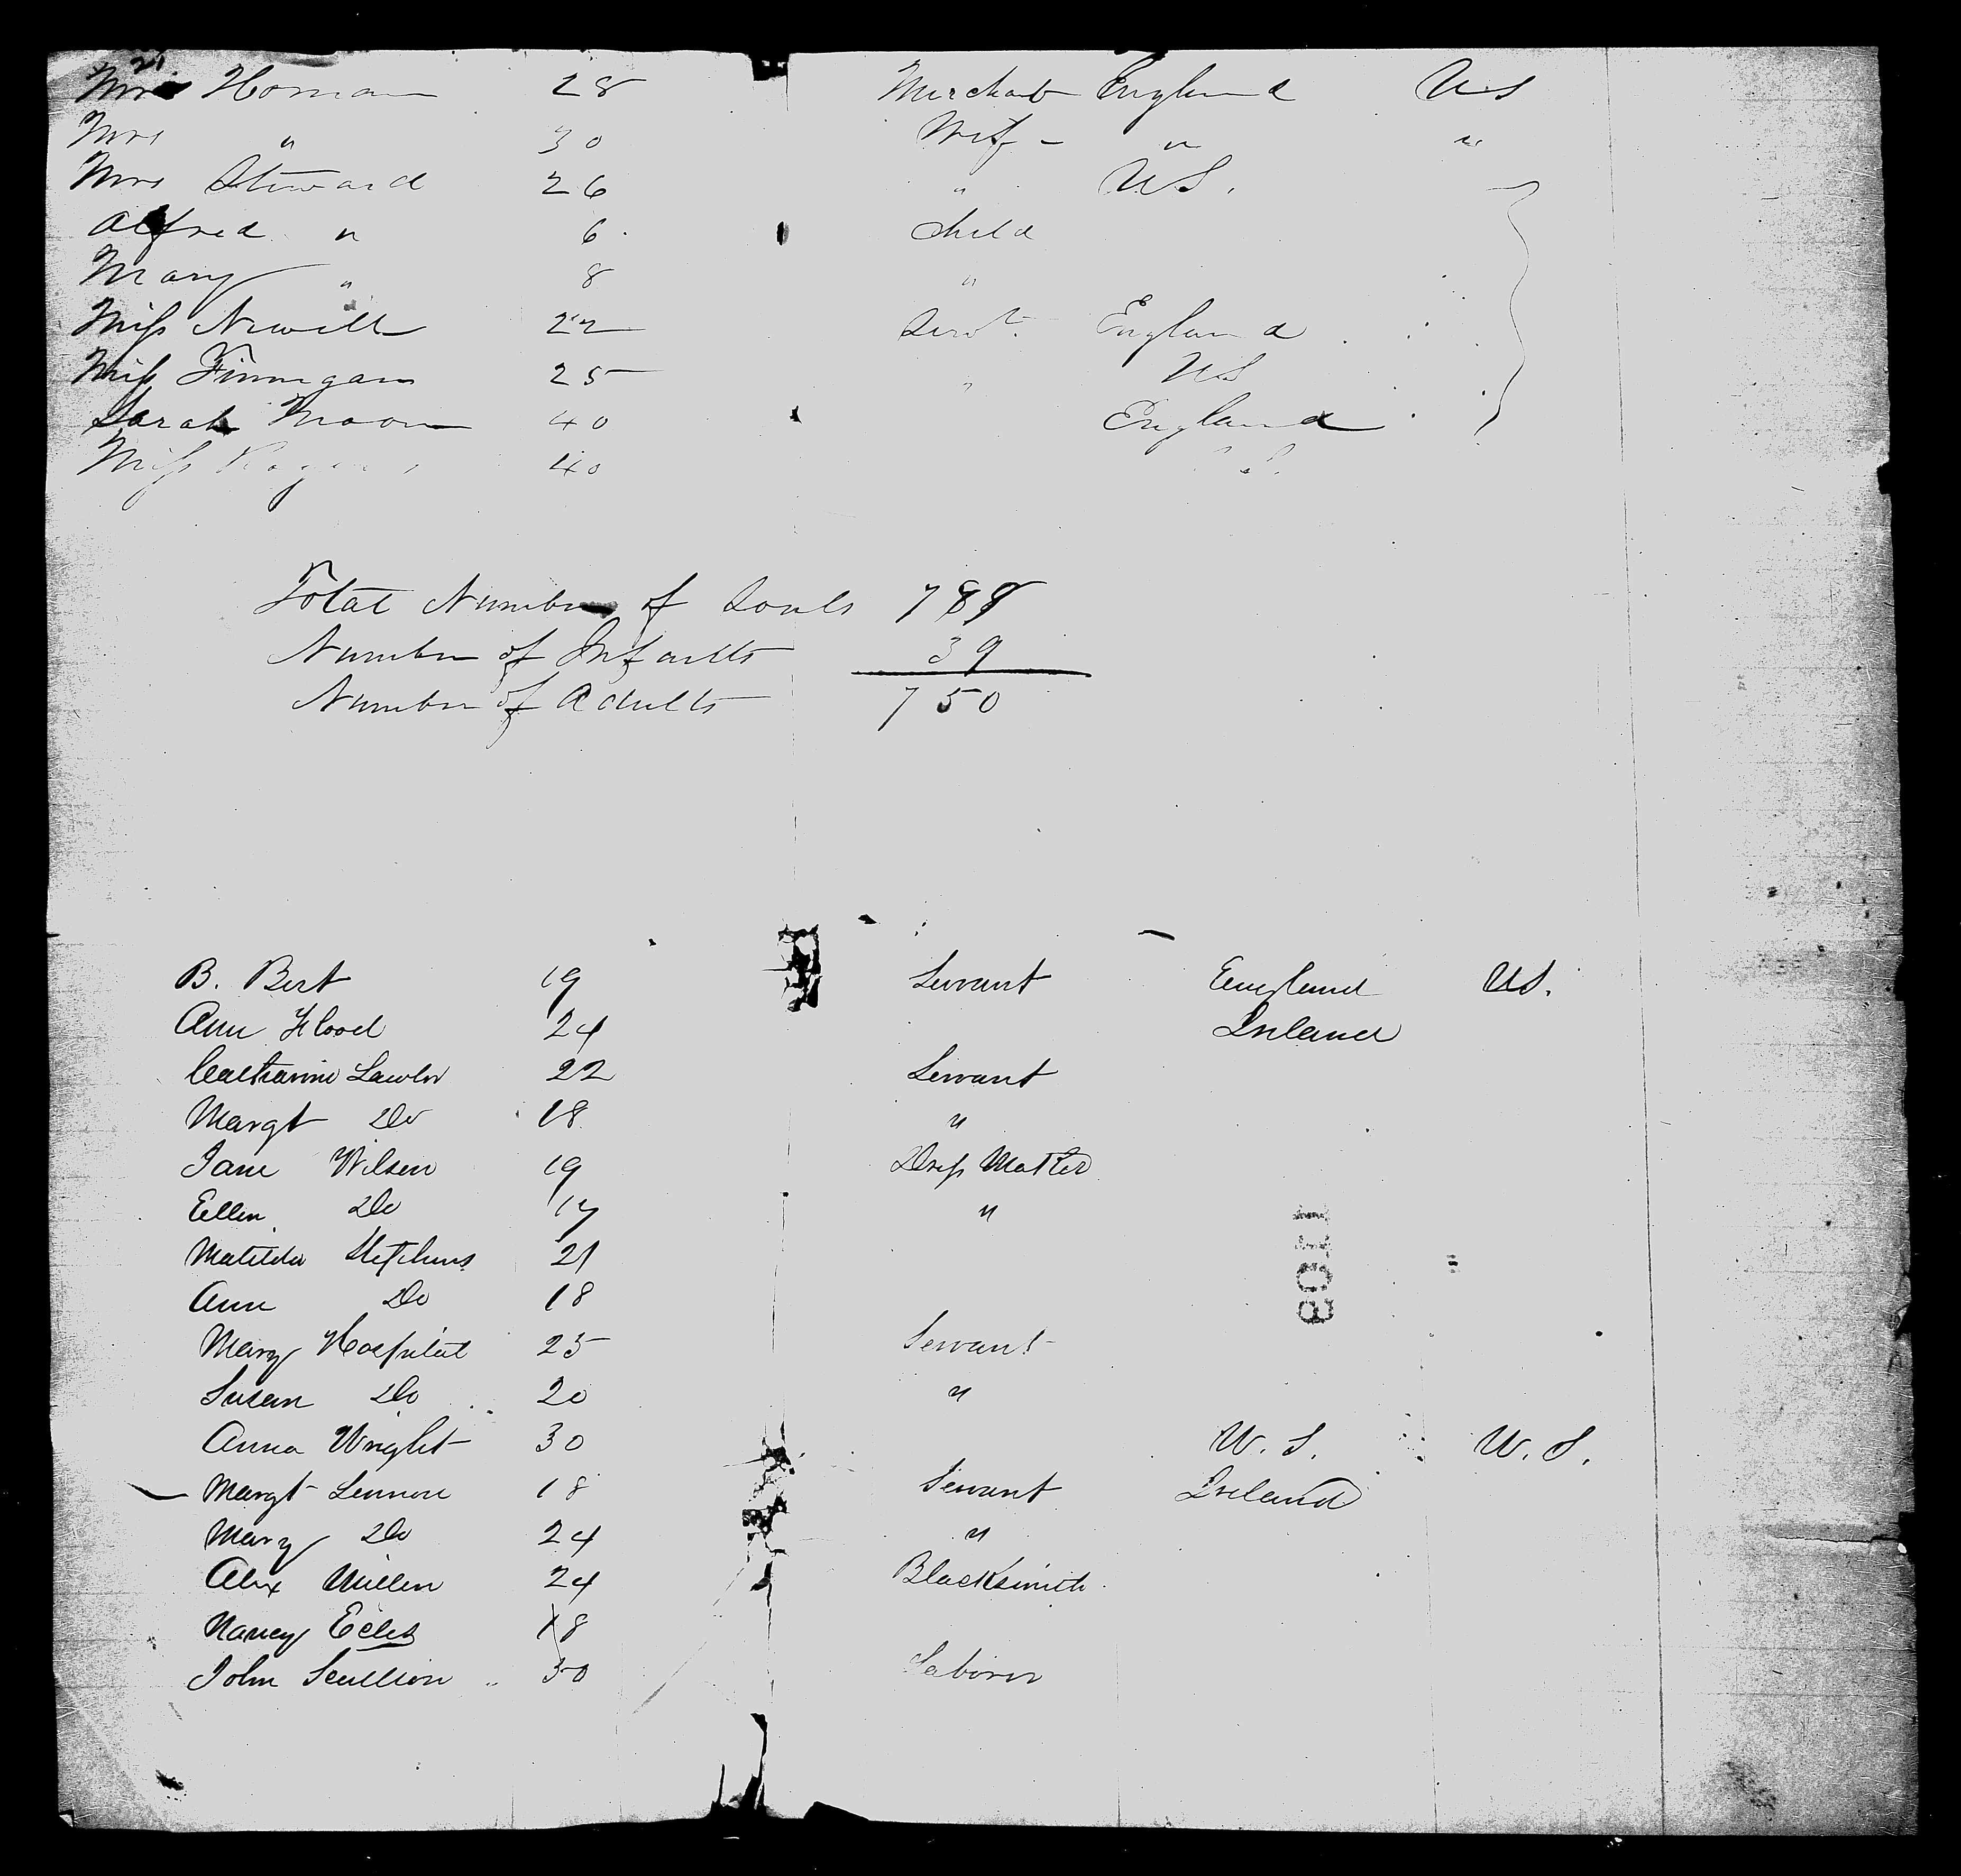 21
Mr Homan 28 Merchant England US
Mrs " 30 Wife " "
Mrs Steward 26 " US.
Alfred " 6 Child
Mary " 8 "
Miss Newell 22 Servt England
Miss Finnigan 25 " US
Sarah Moon 40 England
Miss 40 S.
Total Number of Souls 789
Number of Infants 39
Number of Adults 750
B. Bert 19 Servant England US.
Ann Flood 24 Ireland
Catharine Lawlor 22 Servant
Margt Do 18 "
Jane Wilson 19 Dress Maker
Ellen Do 17 "
Matilda Stephens 21
Ann Do 18
Mary Hospital 25 Servant
Susan Do 20 "
Anna Wright 30 U.S. U.S.
Margt Lennon 18 Servant Ireland
Mary Do 24 "
Alex Millen 24 Blacksmith
Nancy Ecles 18
John Scullion 30 Laborer
1103